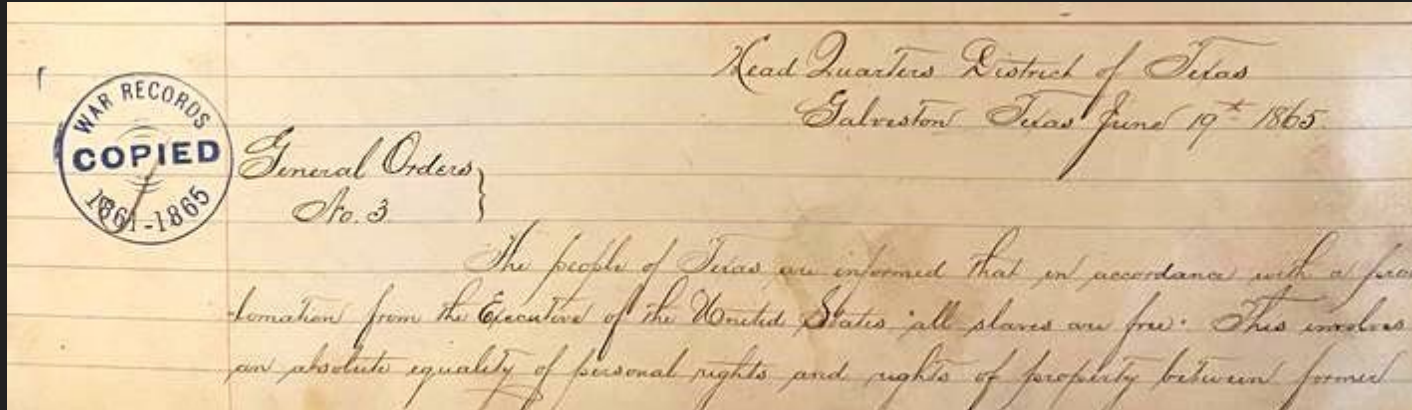 Head Quarters District of Texas
Galveston Texas June 19th 1865.
WAR RECORDS
COPIED
1861-1865
General Orders
No. 3
The people of Texas are informed that in accordance with a proc
lamation from the Executive of the United States "all slaves are free." This involves
an absolute equality of personal rights and rights of property between former